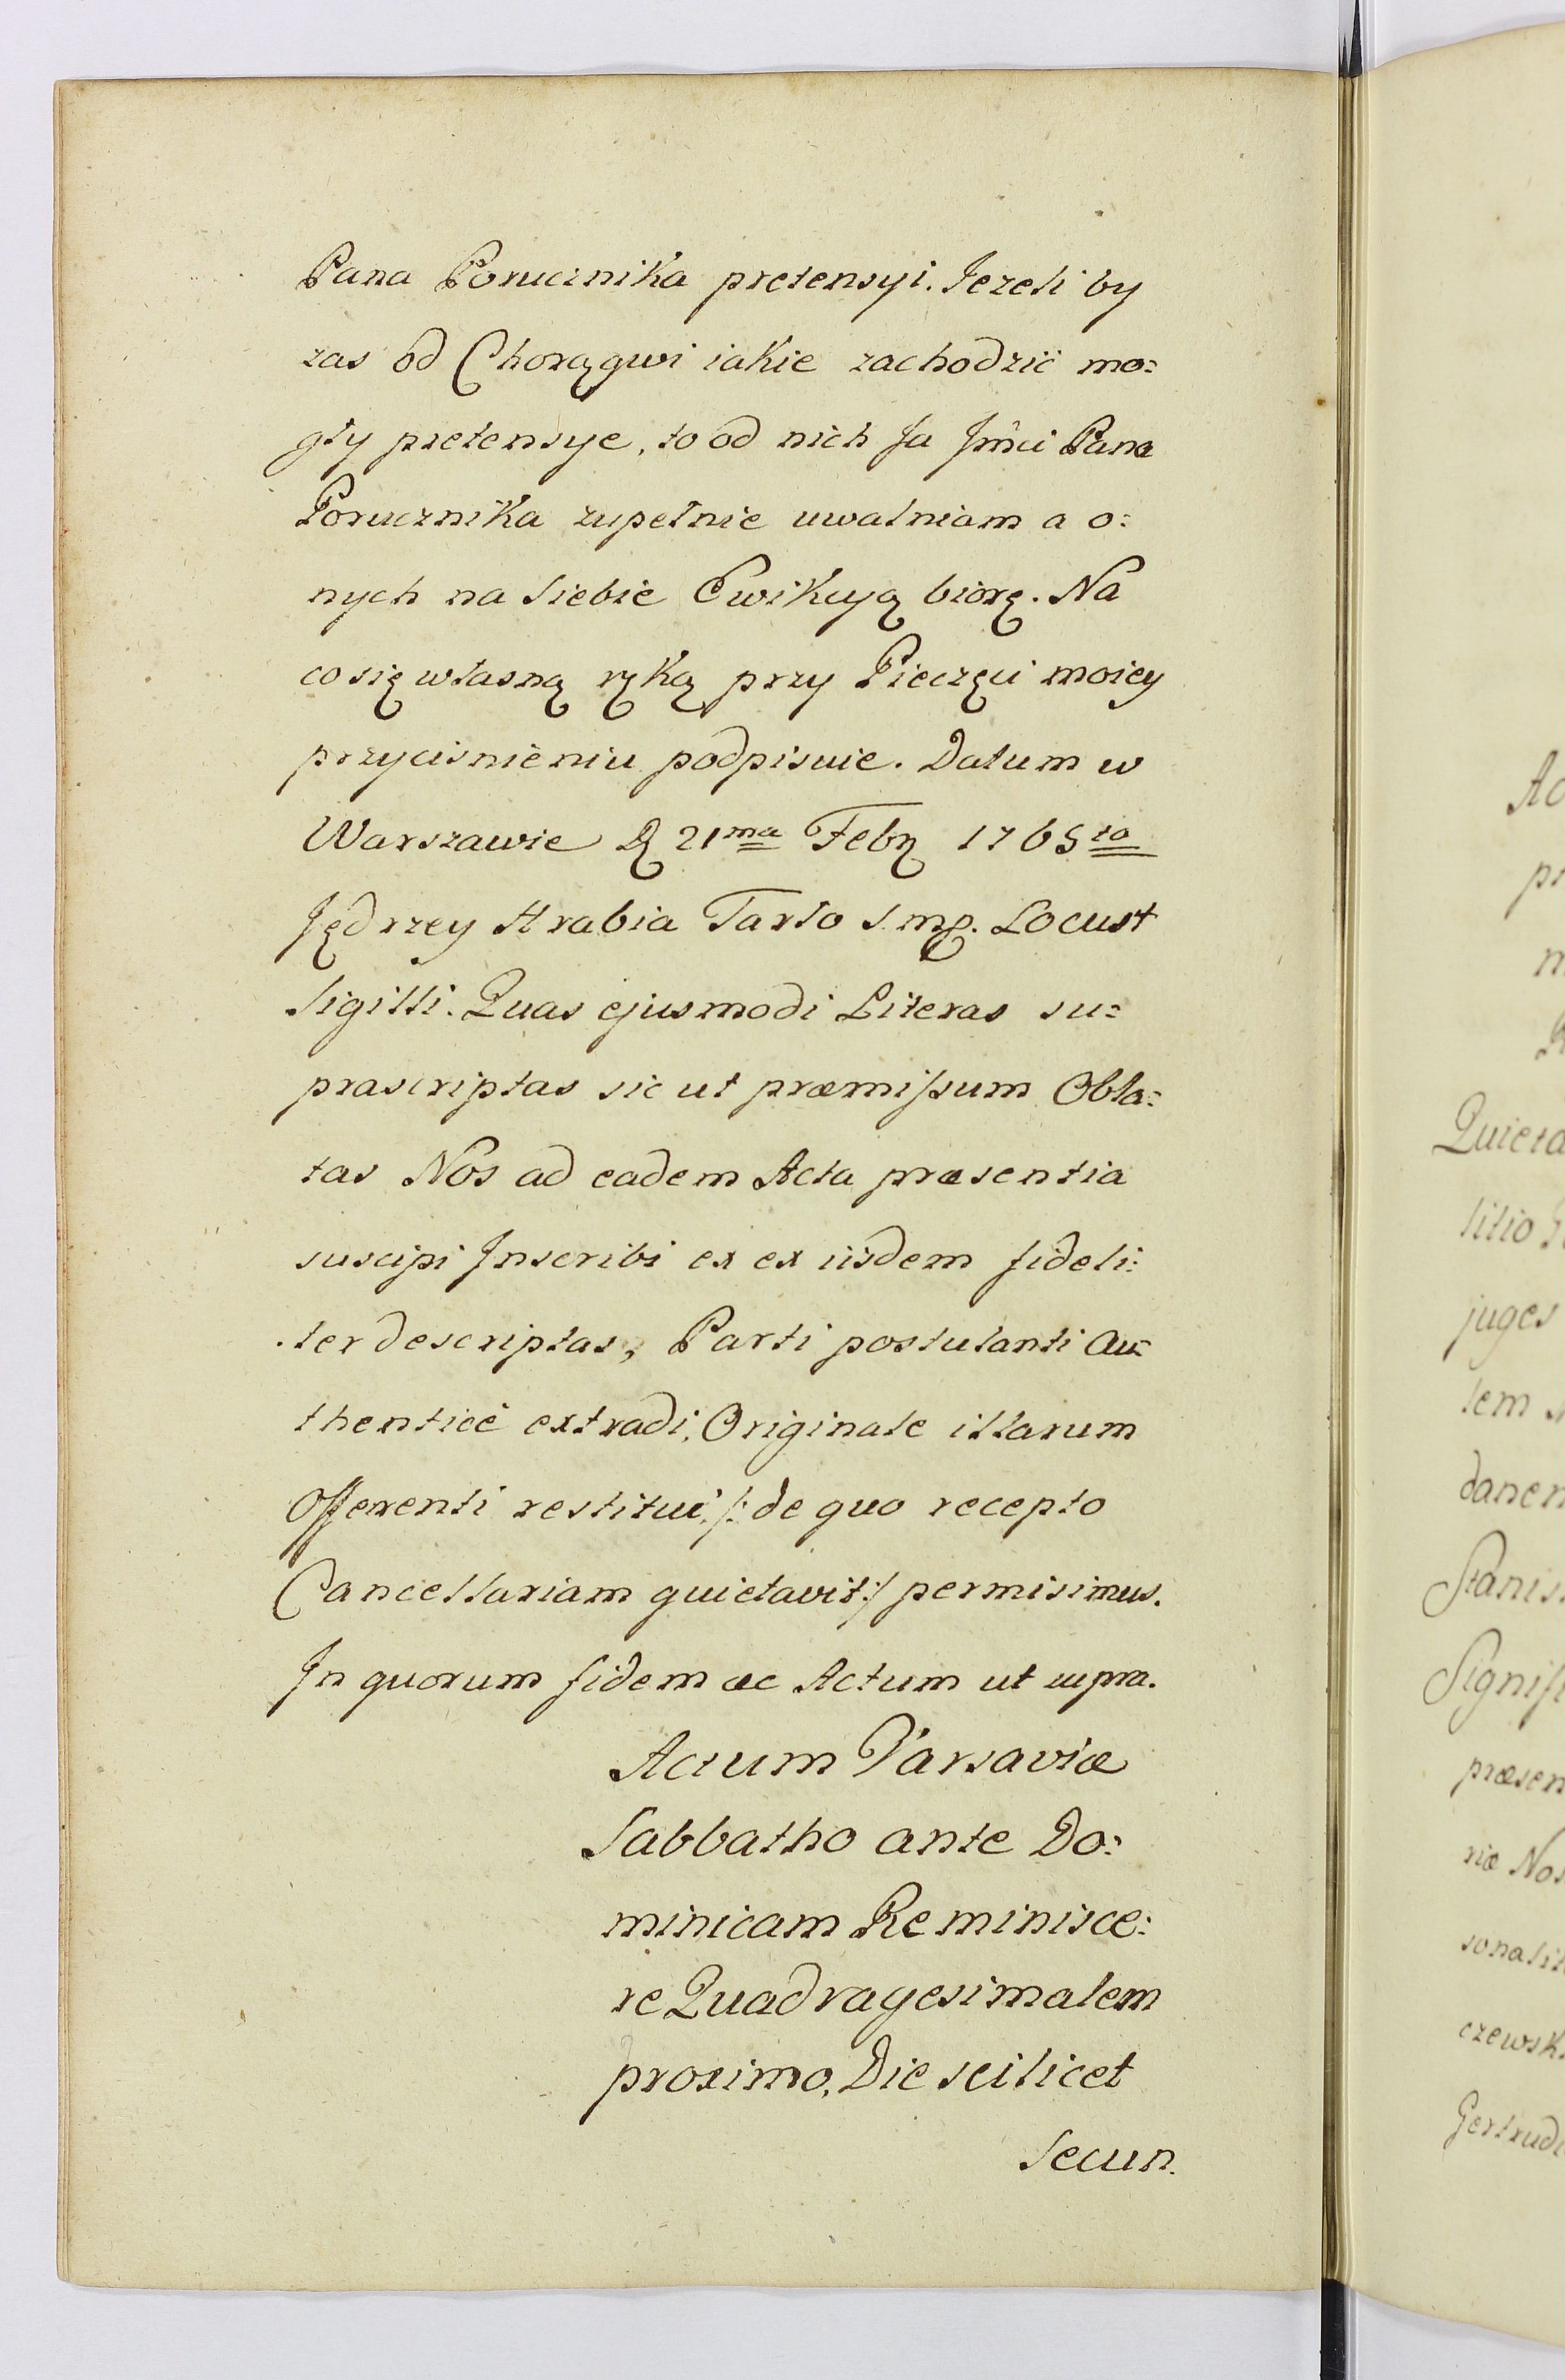 Pana Porucznika pretensyi. Jezeli by
zas od Chorągwi iakie zachodzić mo=
gły pretensye, to od nich Ja Jmći Pana
Porucznika zupełnie uwalniam a o=
nych na siebie Ewikcyą biorę. Na
co się własną ręką przy Pieczęci moiey
przycisnieniu podpisuie. Datum w
Warszawie D 21ma Febr 1765to
Jędrzey Hrabia Tarło S. mp. Locus +
Sigilli. Quas ejusmodi Literas su=
prascriptas sic ut præmissum Obla=
tas Nos ad eadem Acta præsentia
suscipi Inscribi ex ex iisdem fideli=
ter descriptas, Parti postulanti Au=
thenticè extradi, Originale illarum
Offerenti restitui /: de quo recepto
Cancellariam quietavit :/ permisimus.
In quorum fidem ac Actum ut supra.
Actum Varsaviæ
Sabbatho ante Do=
minicam Reminisce=
re Quadragesimalem
proximo, Die scilicet
Secun.
Ac
pr
Quieta
litio
juges
tem
danen
Stanis
Signif
præsen
riæ Nos
sonalit
czewsk
Gertrud